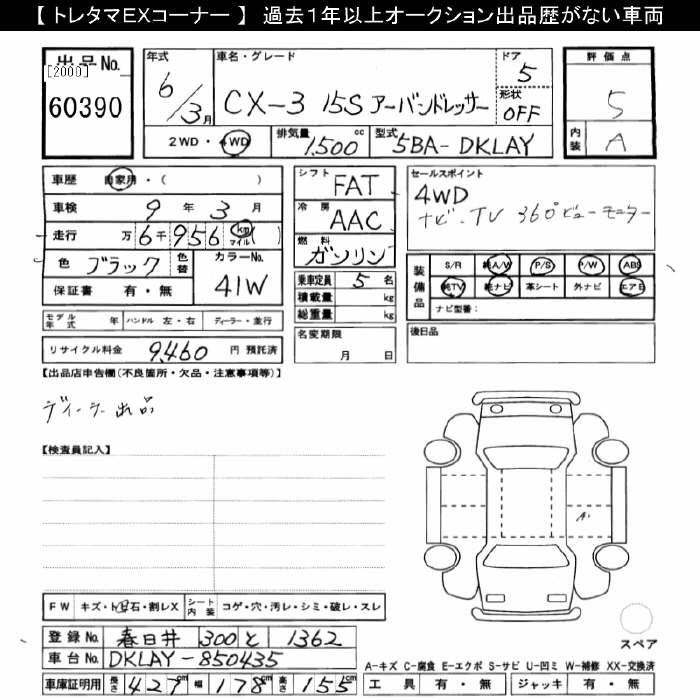 【 トレタマEXコーナー 】 過去1年以上オークション出品歴がない車両
出品No.
[2000]
60390
年式
6/3月
車名・グレード
CX-3 15S アーバンドレッサー
ドア
5
形状
OFF
2WD・4WD
排気量
1,500cc
型式
5BA-DKLAY
評価点
5
内装
A
車歴 自家用・( )
車検 9年 3月
走行 万6千956 km マイル ( )
色 ブラック 色替
カラーNo.
41W
保証書 有・無
シフト
FAT
冷房
AAC
燃料
ガソリン
乗車定員 5名
積載量 kg
総重量 kg
セールスポイント
4WD
ナビ・TV 360°ビューモニター
装備品
S/R 純A/W P/S P/W ABS
純TV 純ナビ 革シート 外ナビ エアB
ナビ型番:
モデル年式 年 ハンドル 左・右 ディーラー・並行
リサイクル料金 9,460 円 預託済
名変期限
月 日
後日品
【出品店申告欄(不良箇所・欠品・注意事項等)】
ディーラー出品
【検査員記入】
A1
FW キズ・ト石・割レX
シート内装 コゲ・穴・汚レ・シミ・破レ・スレ
スペア
登録No. 春日井 300 と 1362
車台No. DKLAY-850435
車庫証明用 長さ 427cm 幅 178cm 高さ 155cm
A-キズ C-腐食 E-エクボ S-サビ U-凹ミ W-補修 XX-交換済
工具 有・無 ジャッキ 有・無